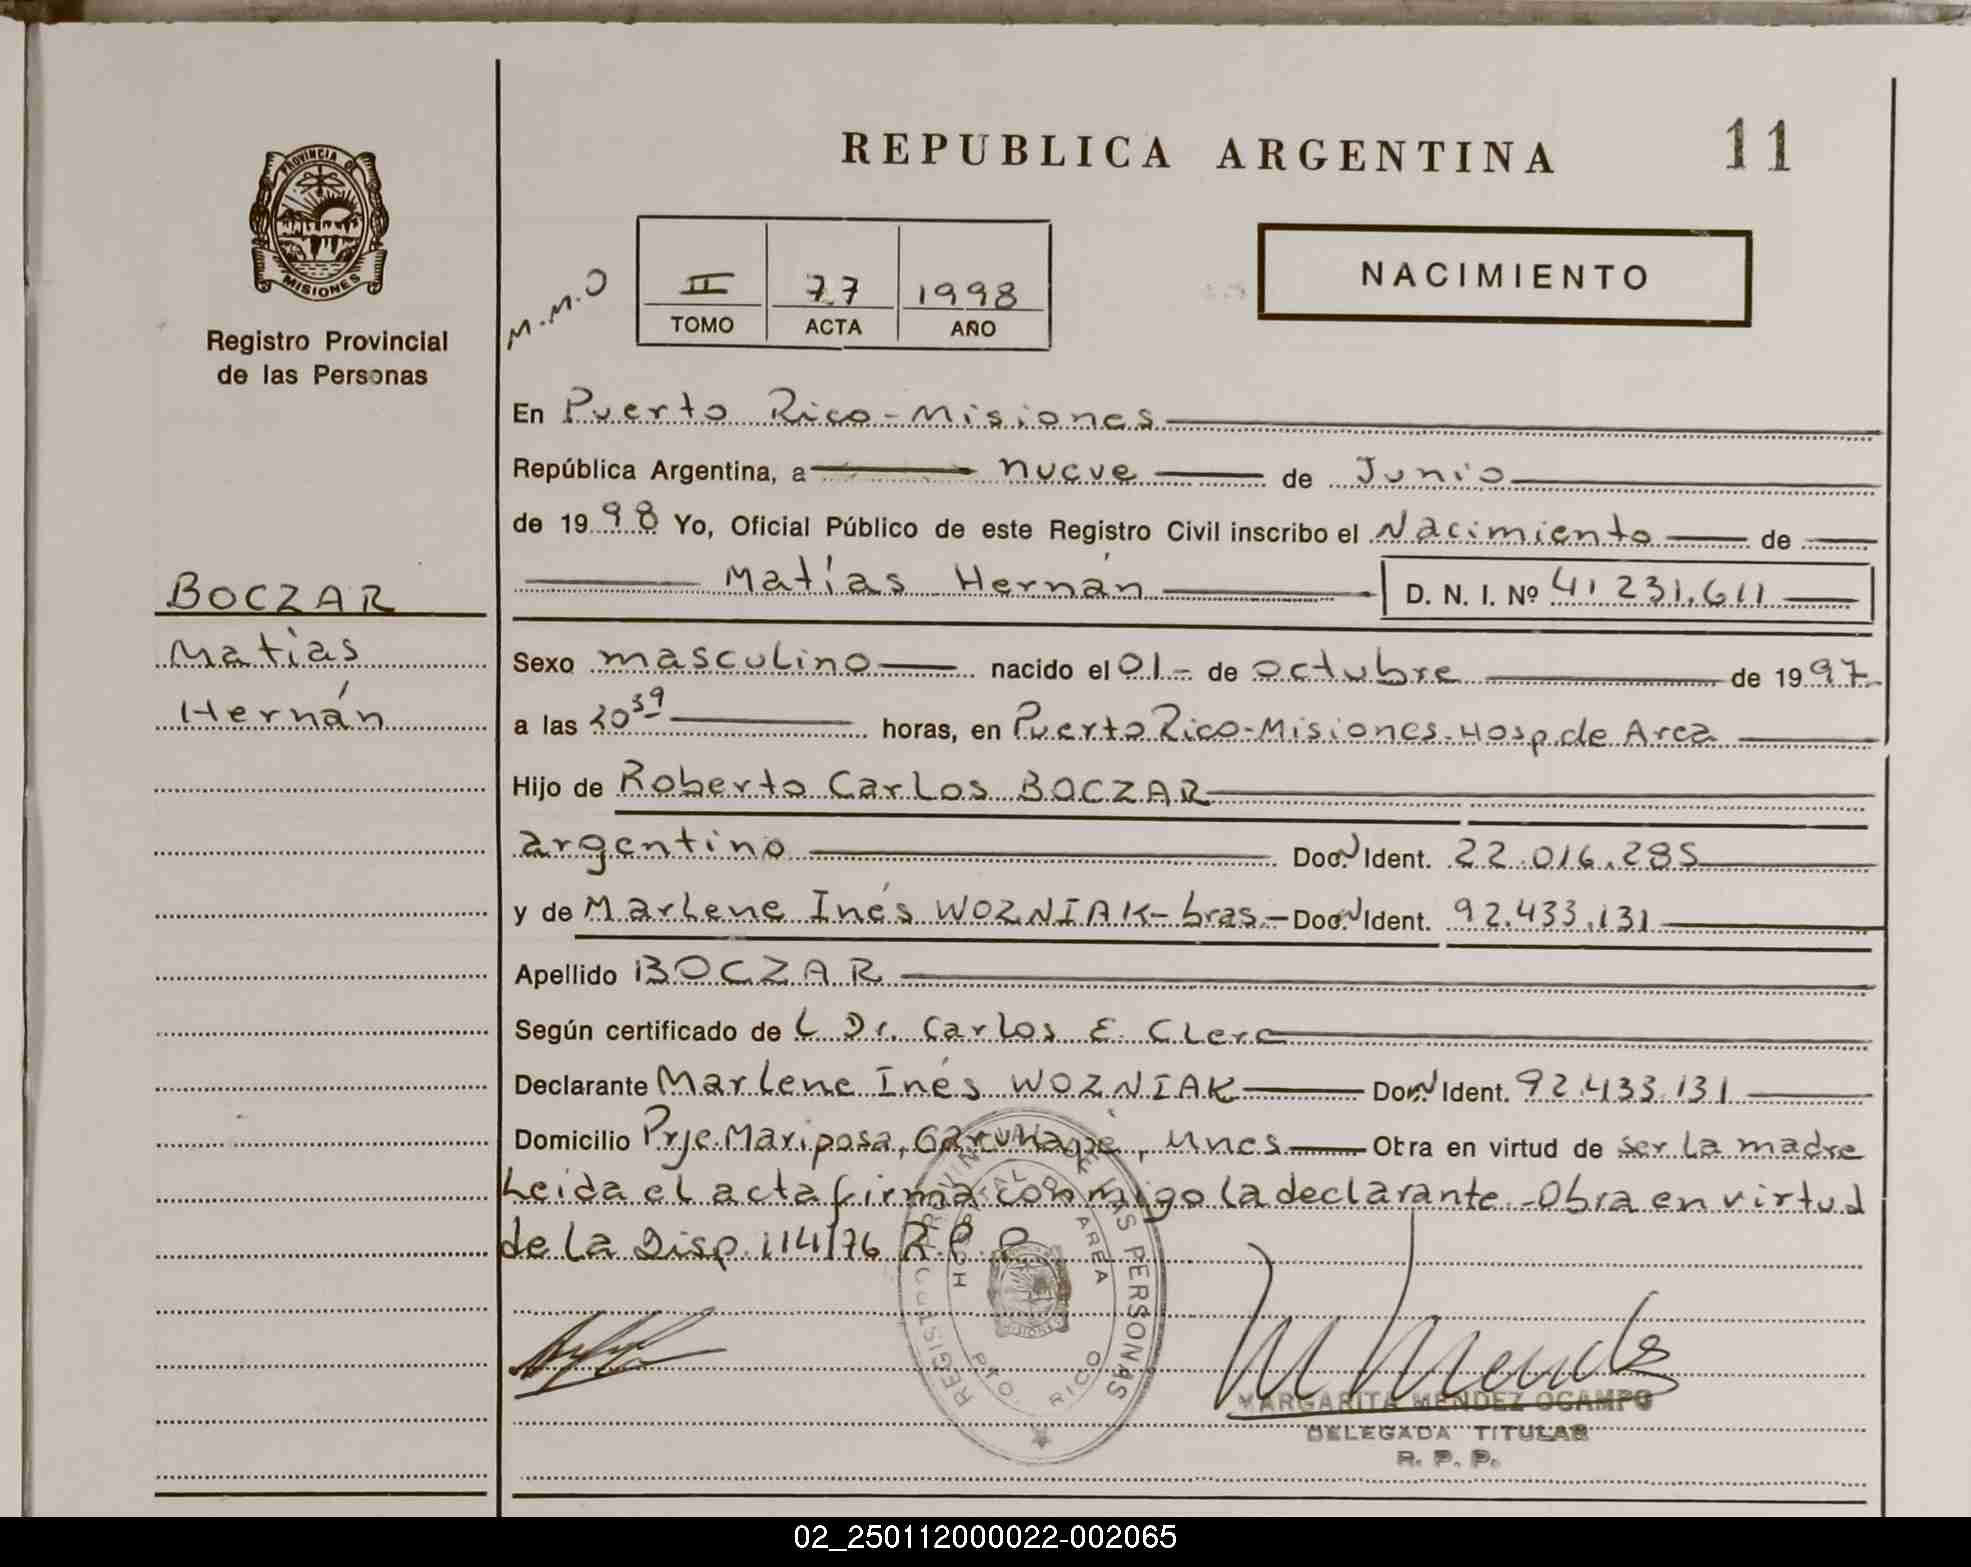 REPUBLICA ARGENTINA
11
PROVINCIA D
MISIONES
Registro Provincial
de las Personas
M.M.O
II 77 1998
TOMO ACTA AÑO
NACIMIENTO
En Puerto Rico - Misiones
República Argentina, a nueve de Junio
de 1998 Yo, Oficial Público de este Registro Civil inscribo el Nacimiento de
Matías Hernán D. N. I. Nº 41 231.611
BOCZAR
Matías
Hernán
Sexo masculino nacido el 01- de octubre de 1997
a las 20 39 horas, en Puerto Rico-Misiones-Hosp.de Area
Hijo de Roberto Carlos BOCZAR
argentino Doc. Ident. 22.016.285
y de Marlene Inés WOZNIAK - bras.- Doc. Ident. 92.433.131
Apellido BOCZAR
Según certificado de L Dr. Carlos E. Clerc
Declarante Marlene Inés WOZNIAK Doc. Ident. 92.433.131
Domicilio Prje.Mariposa, Garuhapé, Mnes Obra en virtud de ser la madre
Leida el acta firma conmigo la declarante.-Obra en virtud
de la Disp. 114/76 R.P.P
REGISTRO PROVINCIAL DE LAS PERSONAS
HOSPITAL DE AREA
PTO. RICO
MISIONES
MARGARITA MENDEZ OCAMPO
DELEGADA TITULAR
R. P. P.
02_250112000022-002065